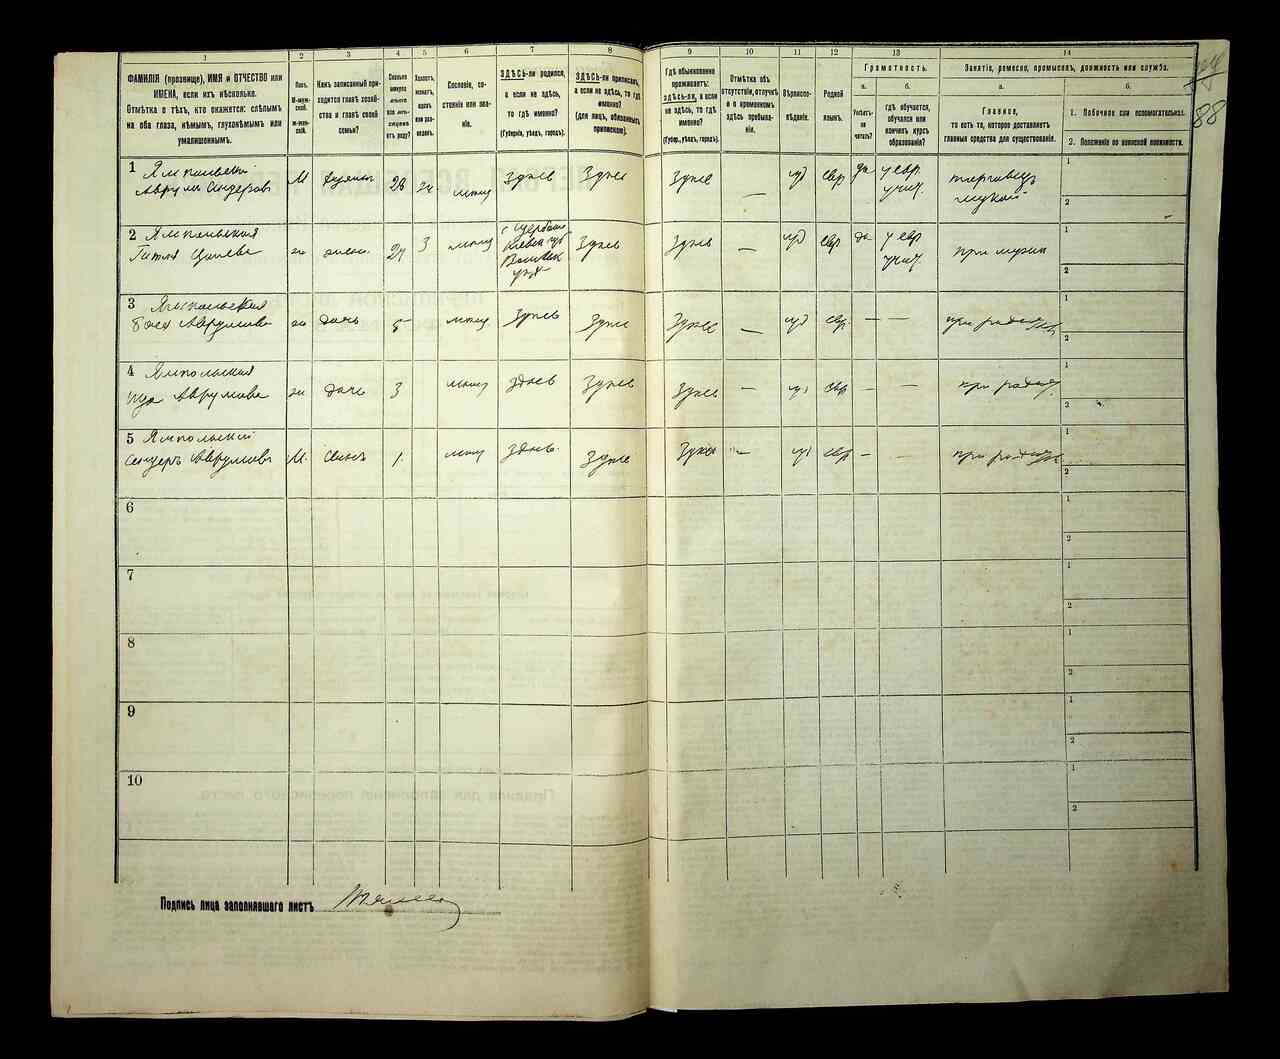 1 2 3 4 5 6 7 8 9 10 11 12 13 14
ФАМИЛІЯ (прозвище), ИМЯ и ОТЧЕСТВО или
ИМЕНА, если ихъ нѣсколько.
Отмѣтка о тѣхъ, кто окажется: слѣпымъ
на оба глаза, нѣмымъ, глухонѣмымъ или
умалишоннымъ.
Полъ.
М-муж-
ской.
ж-жен-
скій.
Кѣмъ записанный при-
ходится главѣ хозяй-
ства и главѣ своей
семьи?
Сколько
минуло
лѣтъ
Холостъ,
женатъ,
вдовъ
или раз-
веденъ.
Сословіе, со-
стояніе или зва-
ніе.
ЗДѢСЬ-ли родился,
а если не здѣсь,
то гдѣ именно?
(Губернія, уѣздъ, городъ).
ЗДѢСЬ-ли приписанъ,
а если не здѣсь, то гдѣ
именно?
(для лицъ, обязанныхъ
припиской).
Гдѣ обыкновенно
проживаетъ:
здѣсь-ли, а если
не здѣсь, то гдѣ
именно?
(Губер., уѣздъ, городъ).
Отмѣтка объ
отсутствіи, отлучкѣ
и о временномъ
здѣсь пребыва-
ніи.
Вѣроиспо-
вѣданіе.
Родной
языкъ.
Грамотность.
а. б.
Умѣетъ-
ли
читать?
гдѣ обучается,
обучался или
кончилъ курсъ
образованія?
Занятіе, ремесло, промыселъ, должность или служба.
а. б.
Главное,
то есть то, которое доставляетъ
главныя средства для существованія.
1. Побочное или вспомогательное.
2. Положеніе по воинской повинности.
88
1 Ямпольскій
Аврум Сендеров М 28 мѣщ Здѣсь Здѣсь Здѣсь — іуд евр да у евр
учил. торговецъ
мукой
1
2
2 Ямпольская
жена 27 З мѣщ Здѣсь Здѣсь — іуд евр да у евр
учил. при мужѣ
1
2
3 Ямпольская
Аврумова ж дочь 5 мѣщ Здѣсь Здѣсь Здѣсь — іуд евр — — при родит
1
2
4 Ямпольская
Аврумова ж дочь 3 мѣщ здѣсь Здѣсь Здѣсь — іуд евр — — при родит
1
2
5 Ямпольскій
Сендеръ Аврумовъ М. сынъ 1 мѣщ здѣсь Здѣсь Здѣсь — іуд евр — при родит
1
2
6 1
2
7 1
2
8 1
2
9 1
2
10 1
2
Подпись лица заполнявшаго листъ